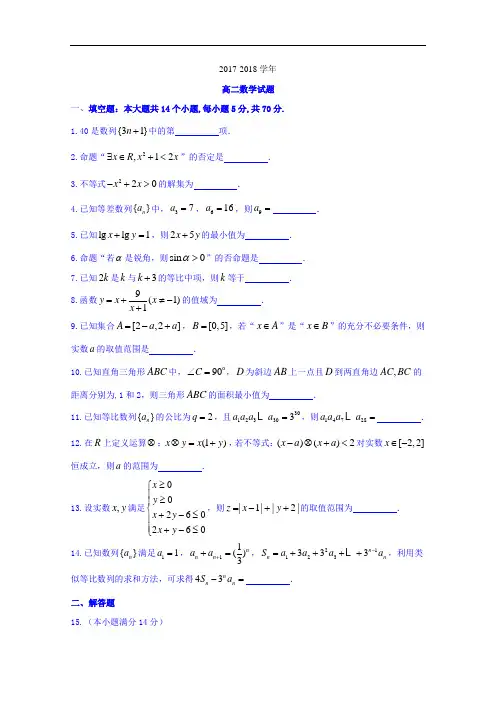 2017-2018学年
高二数学试题
一、填空题：本大题共14个小题,每小题5分,共70分.
1.40是数列{3n+1}中的第 ________ 项.
2.命题“∃x∈R, x²+1<2x”的否定是 ________ .
3.不等式-x²+2x>0的解集为 ________ .
4.已知等差数列{aₙ}中，a₃=7，a₆=16，则a₉= ________ .
5.已知lg x+lg y=1，则2x+5y的最小值为 ________ .
6.命题“若α是锐角，则sinα>0”的否命题是 ________ .
7.已知2k是k与k+3的等比中项，则k等于 ________ .
8.函数y=x+9/(x+1)(x≠-1)的值域为 ________ .
9.已知集合A=[2-a,2+a]，B=[0,5]，若“x∈A”是“x∈B”的充分不必要条件，则
实数a的取值范围是 ________ .
10.已知直角三角形ABC中，∠C=90°，D为斜边AB上一点且D到两直角边AC,BC的
距离分别为.1和2，则三角形ABC的面积最小值为 ________ .
11.已知等比数列{aₙ}的公比为q=2，且a₁a₂a₃L a₃₀=3³⁰，则a₁a₄a₇L a₂₈= ________ .
12.在R上定义运算⊗：x⊗y=x(1+y)，若不等式：(x-a)⊗(x+a)<2对实数x∈[-2,2]
恒成立，则a的范围为 ________ .
13.设实数x,y满足{x≥0
y≥0
x+2y-6≤0
2x+y-6≤0，则z=|x-1|+|y+2|的取值范围为 ________ .
14.已知数列{aₙ}满足a₁=1，aₙ+aₙ₊₁=(1/3)ⁿ，Sₙ=a₁+3a₂+3²a₃+L+3ⁿ⁻¹aₙ，利用类
似等比数列的求和方法，可求得4Sₙ-3ⁿaₙ= ________ .
二、解答题
15.（本小题满分14分）